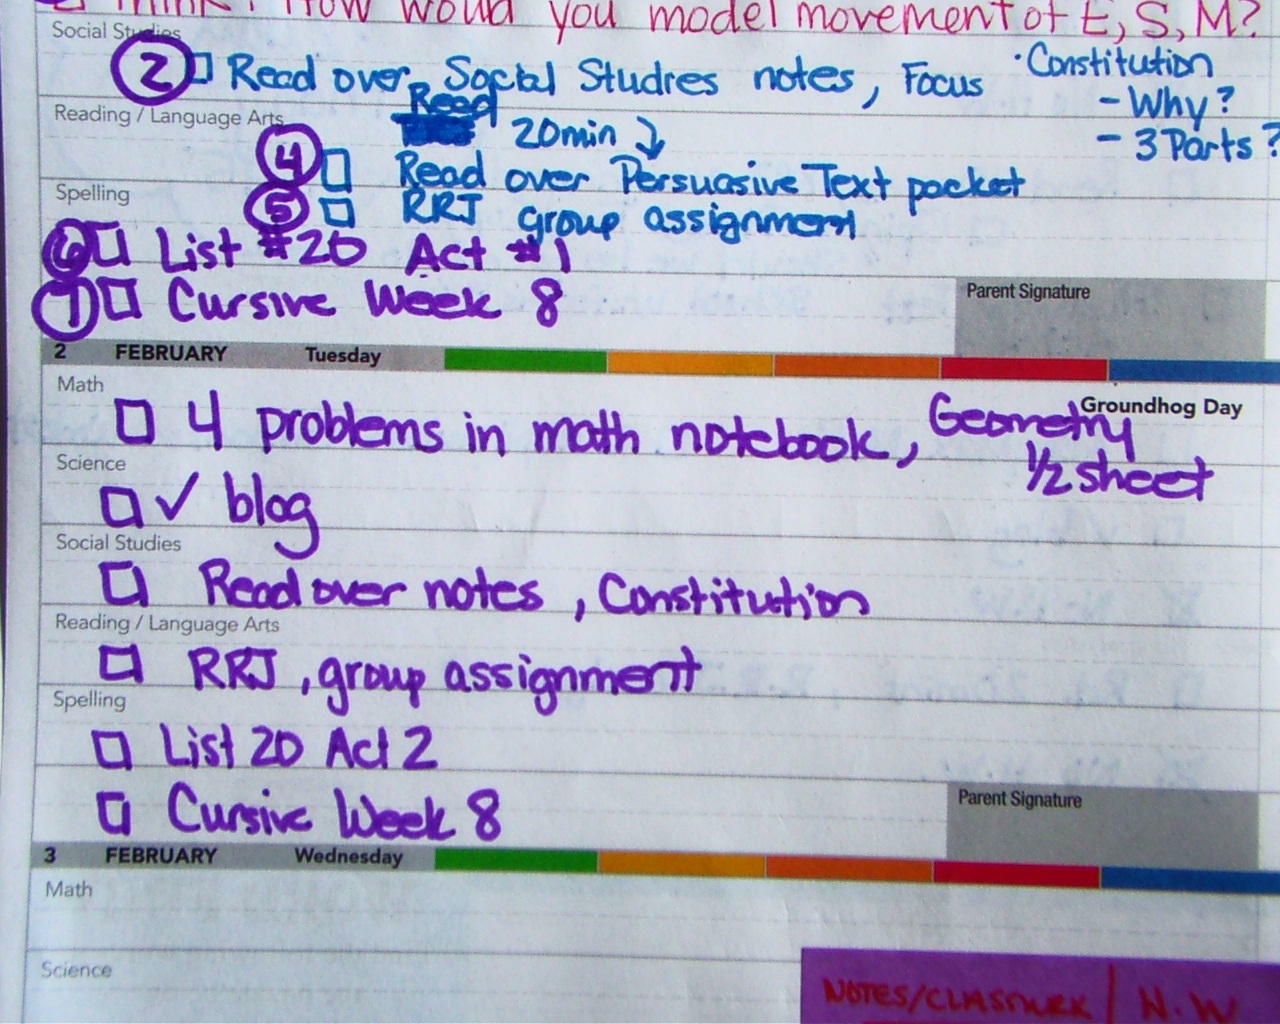 Think: How would you model movement of E, S, M?
Social Studies
2 Read over Social Studies notes, Focus · Constitution
- Why?
- 3 Parts?
Reading / Language Arts
Read 20min
4 Read over Persuasive Text packet
Spelling
5 RRJ group assignment
6 List #20 Act #1
7 Cursive Week 8
Parent Signature
2 FEBRUARY Tuesday
Math
Groundhog Day
4 problems in math notebook, Geometry
1/2 sheet
Science
✓ blog
Social Studies
Read over notes, Constitution
Reading / Language Arts
RRJ, group assignment
Spelling
List 20 Act 2
Cursive Week 8
Parent Signature
3 FEBRUARY Wednesday
Math
Science
NOTES/CLASSWORK | H.W